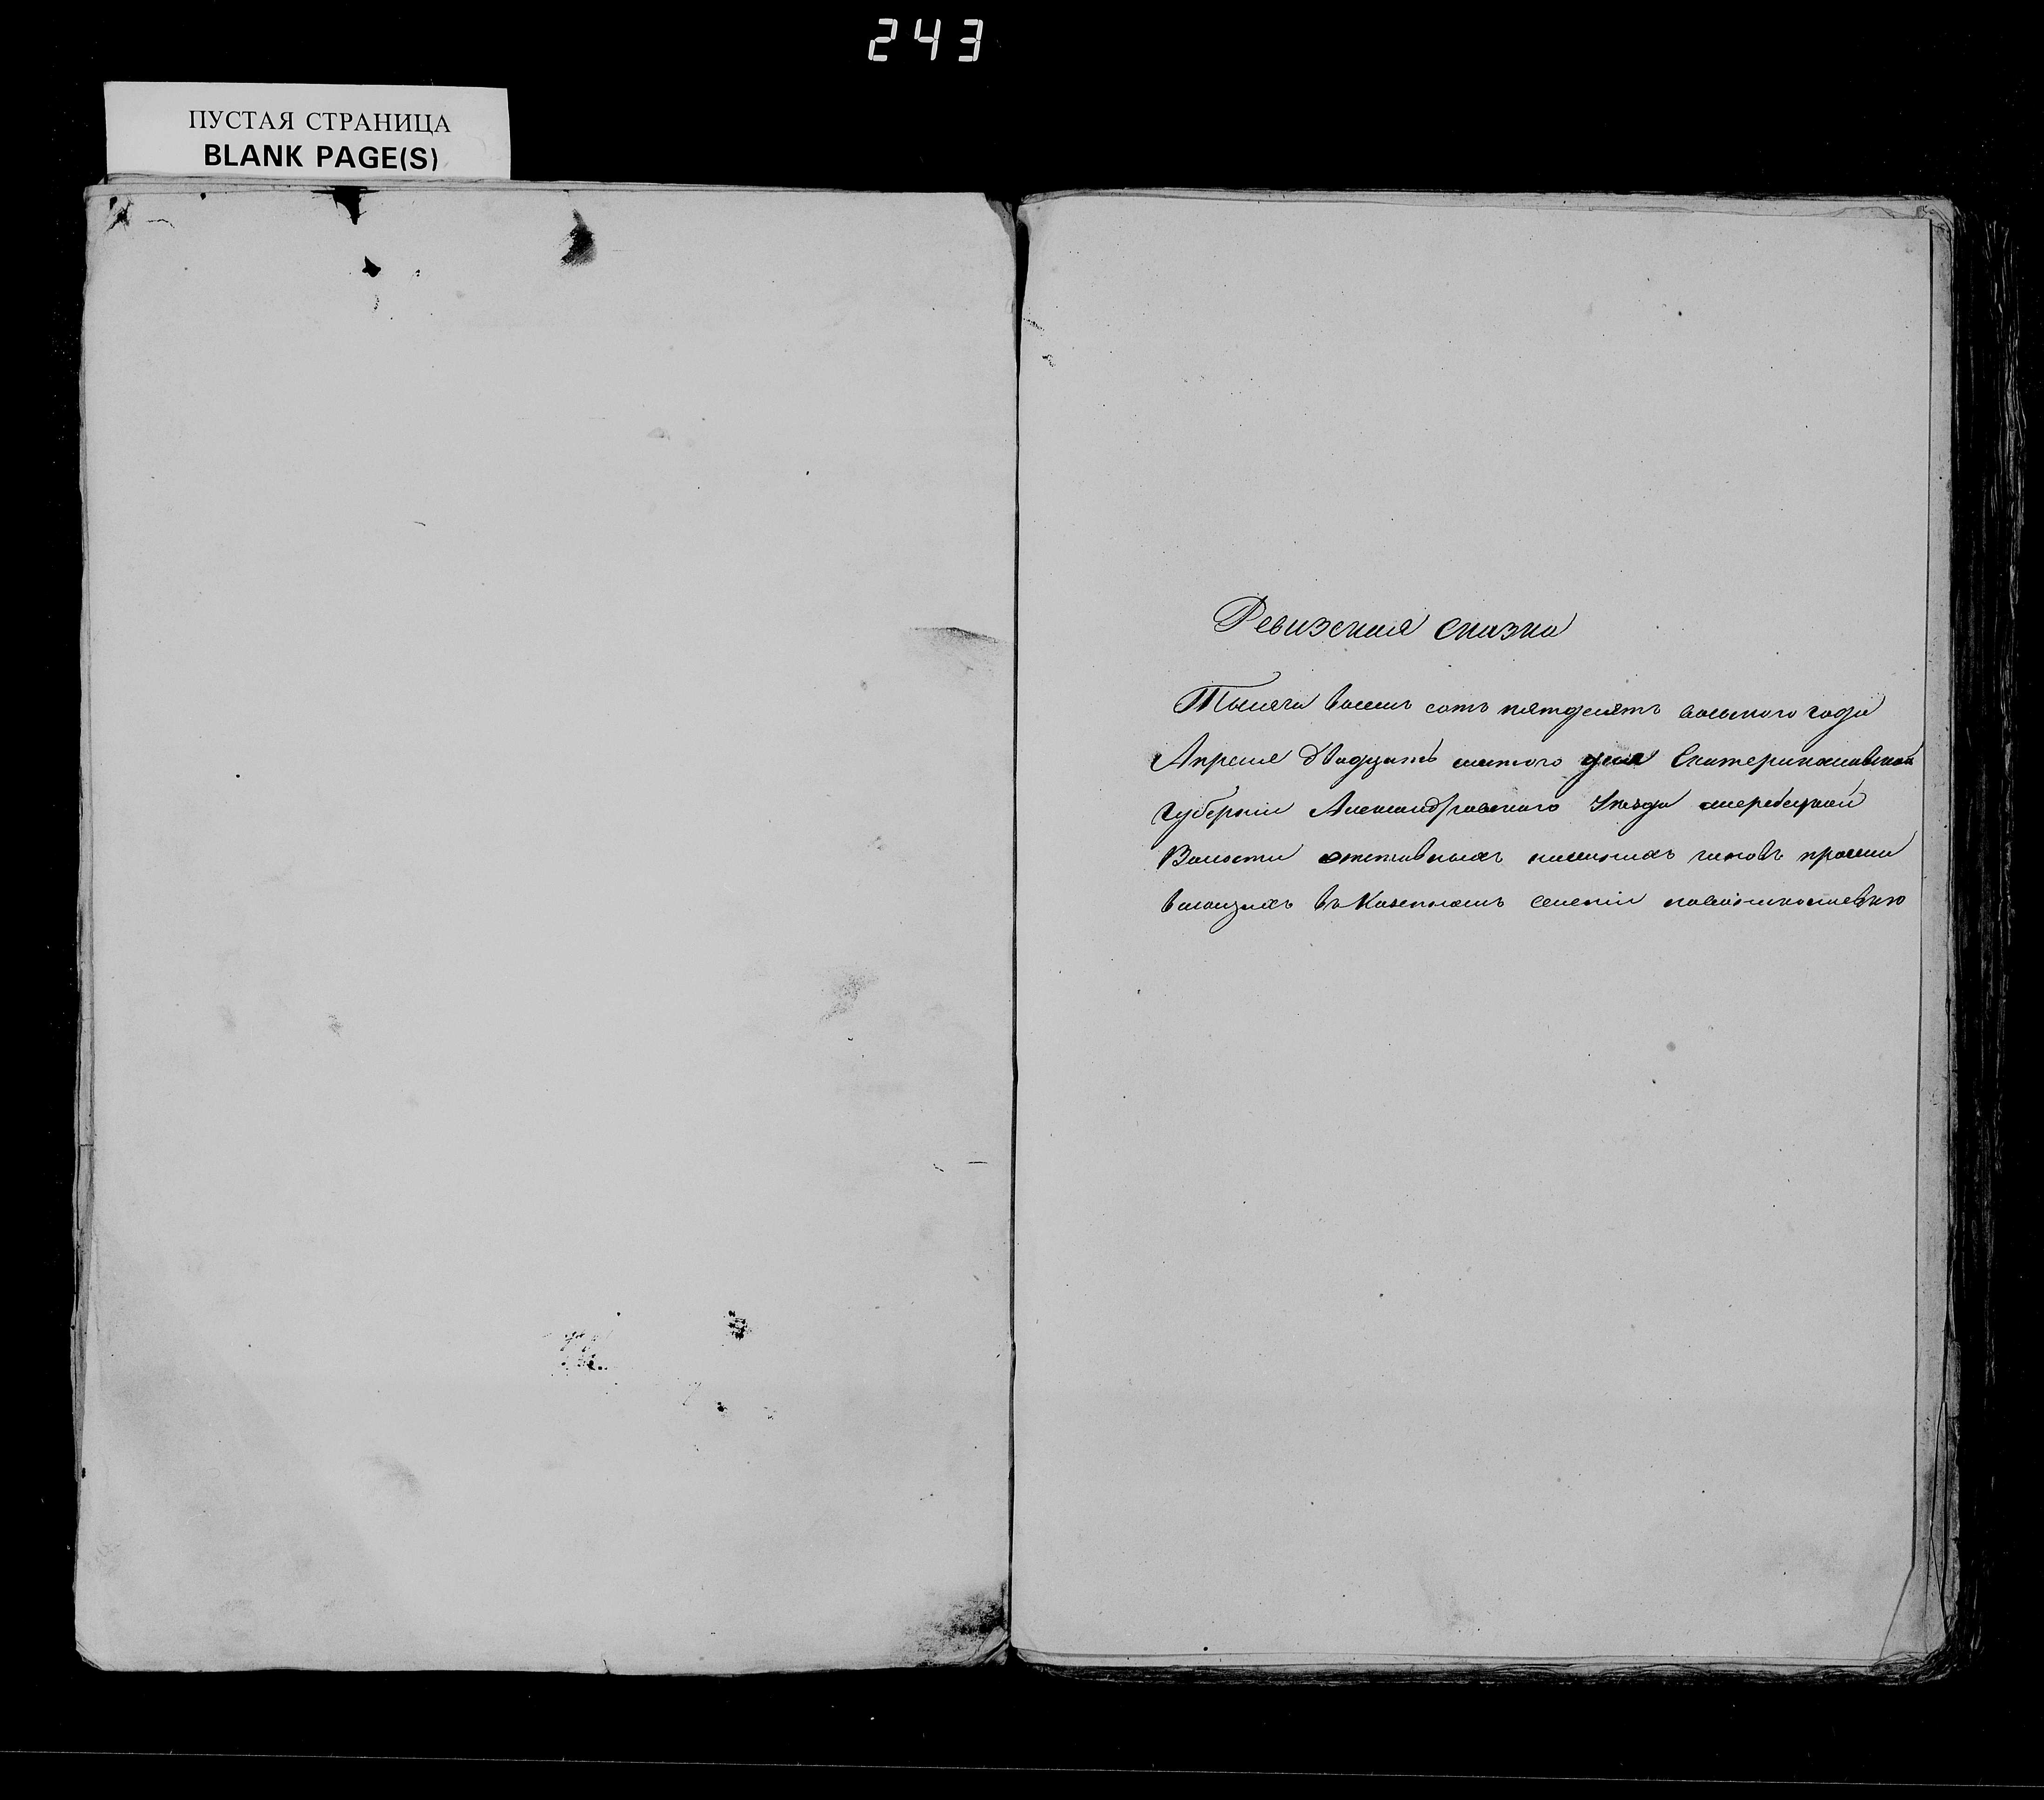 243
ПУСТАЯ СТРАНИЦА
BLANK PAGE(S)
Ревизская сказка
Тысяча восемь сотъ пятдесятъ восьмого года
Апреля двадцать шестого дня Екатеринославской
губерніи Александровского Уѣзда жеребецкой
Волости отставныхъ нижнихъ чиновъ прожи
вающихъ въ Казенномъ селеніи